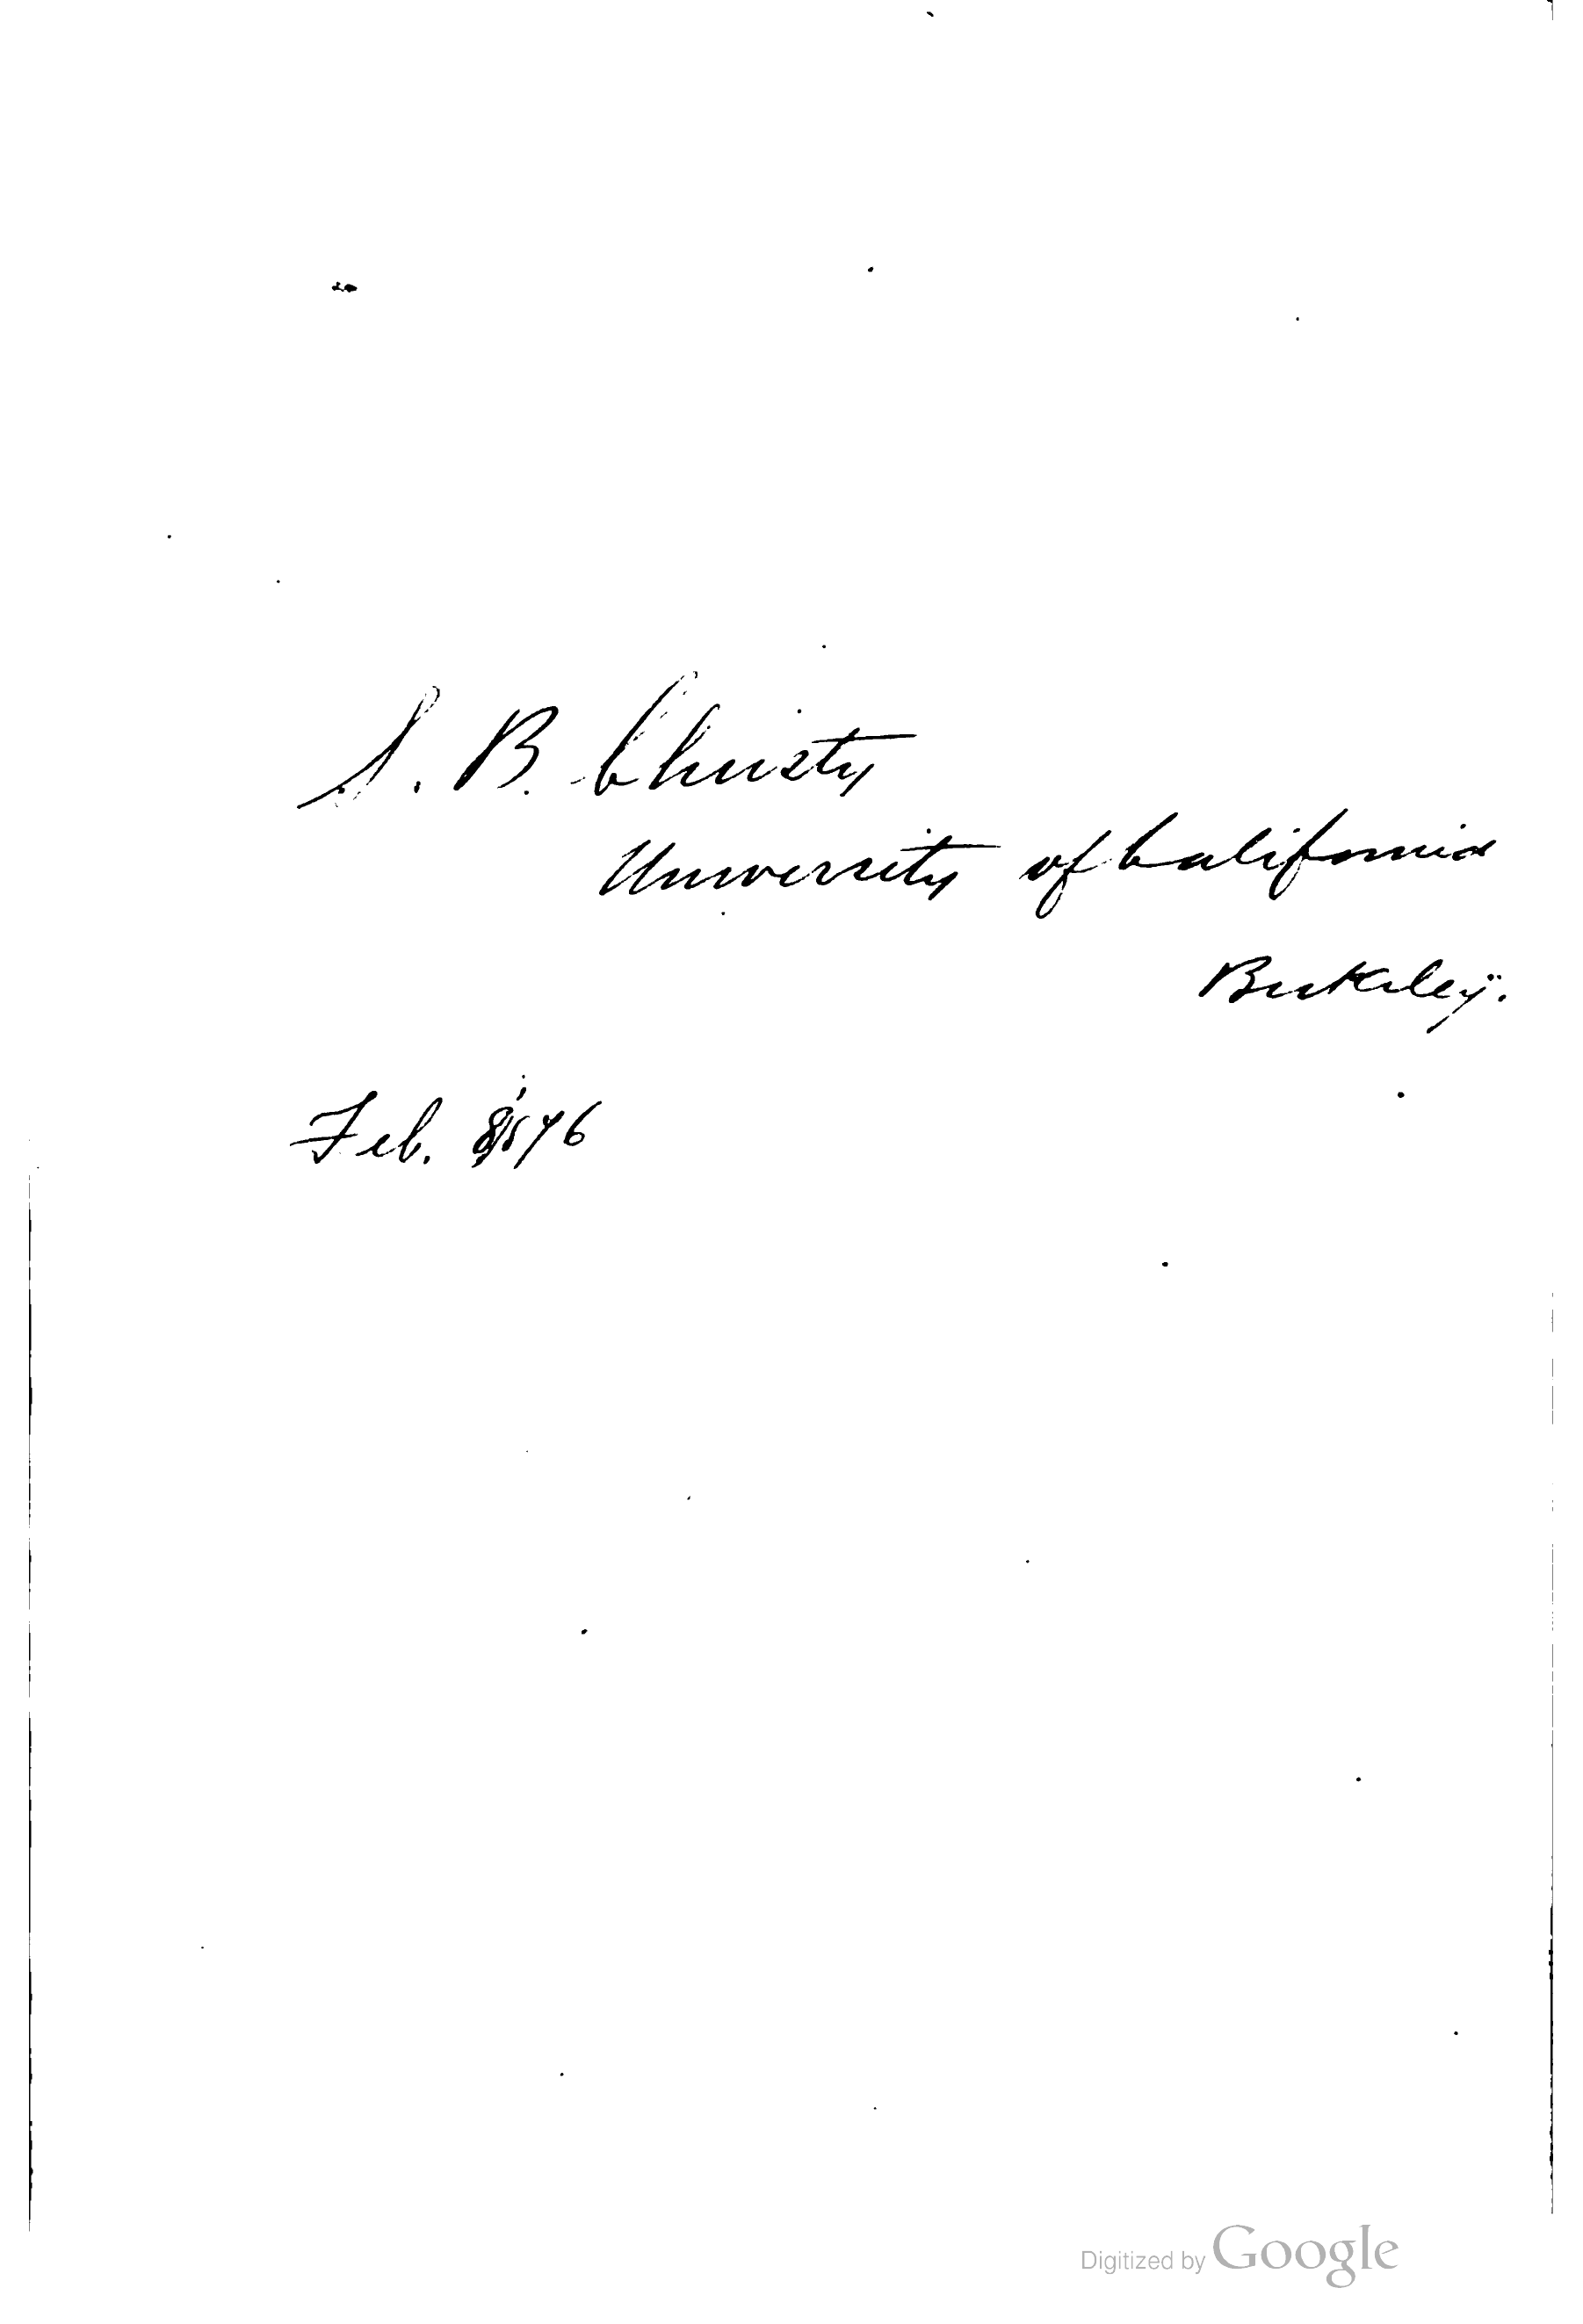 S. B. Christy
University of California
Berkeley.
Feb. 8/76
Digitized by Google